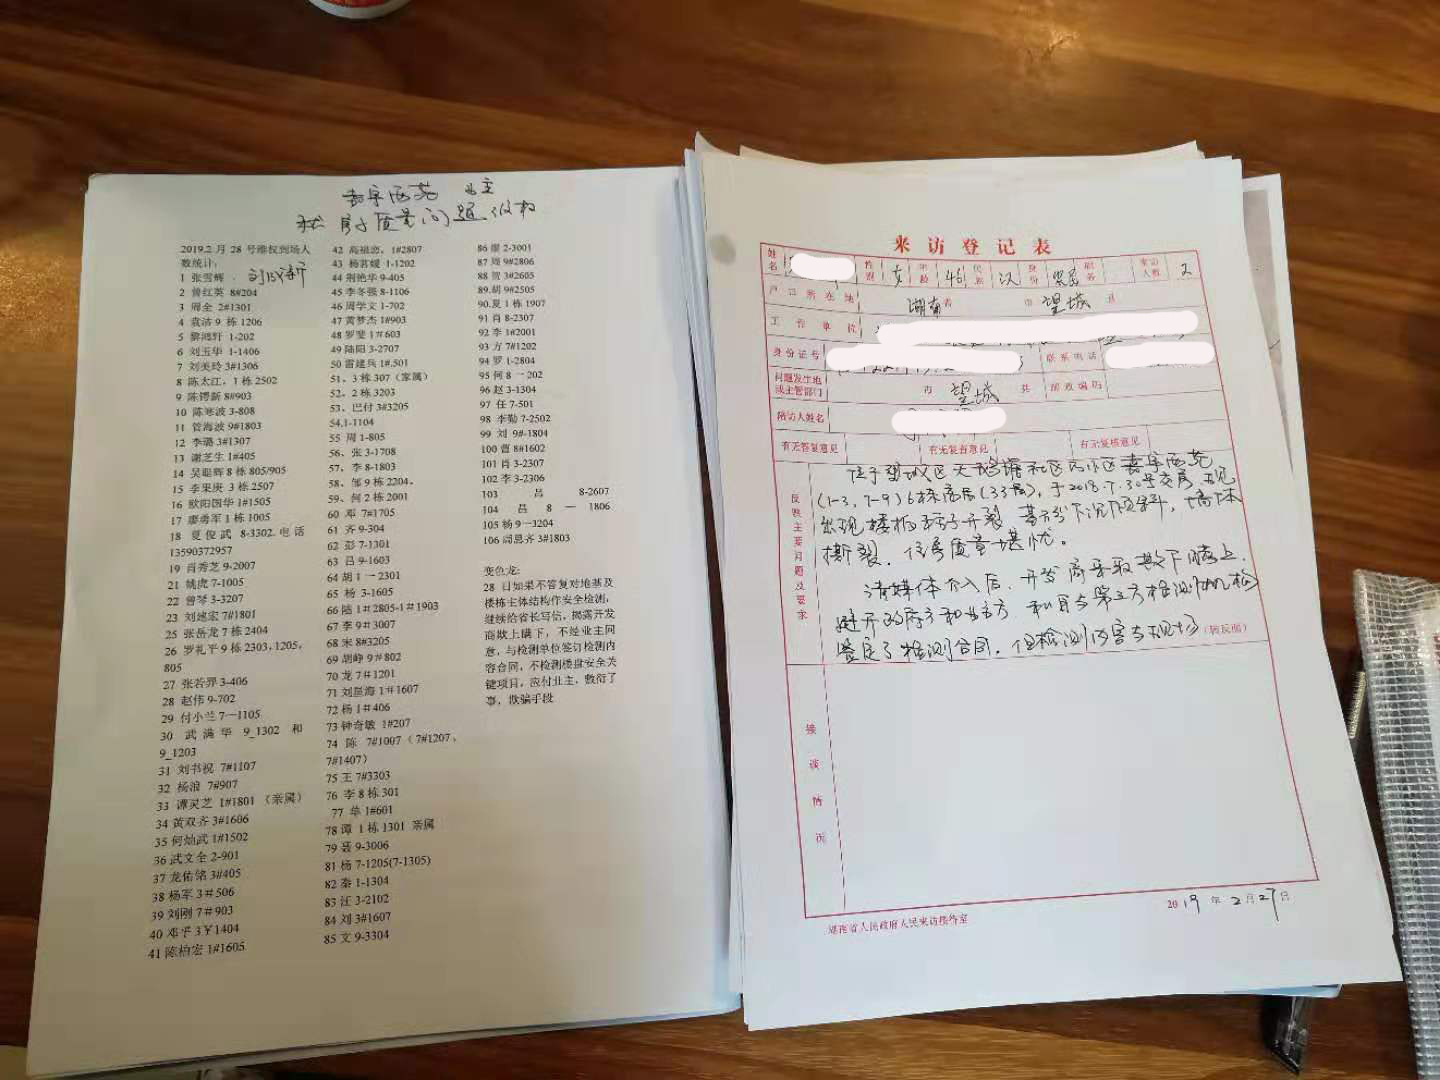 嘉宇西苑 业主
房子质量问题维权
2019.2月28号维权到场人
数统计:
1 张雪辉. 刘政新
2 曾红英 8#204
3 周全 2#1301
4 袁洁 9 栋 1206
5 黎鸿轩 1-202
6 刘玉华 1-1406
7 刘美玲 3#1306
8 陈太江，1 栋 2502
9 陈锷新 8#903
10 陈寒波 3-808
11 管海波 9#1803
12 李璐 3#1307
13 谢芝生 1#405
14 吴聪辉 8 栋 805/905
15 李果庚 3 栋 2507
16 欧阳国华 1#1505
17 廖勇军 1 栋 1005
18 夏俊武 8-3302.电话
13590372957
19 肖秀芝 9-2007
21 姚虎 7-1005
22 曾琴 3-3207
23 刘建宏 7#1801
25 张岳龙 7 栋 2404
26 罗礼平 9 栋 2303，1205，
805
27 张若羿 3-406
28 赵伟 9-702
29 付小兰 7—1105
30 武满华 9_1302 和
9_1203
31 刘书祝 7#1107
32 杨浪 7#907
33 谭灵芝 1#1801（亲属）
34 黄双齐 3#1606
35 何灿武 1#1502
36 武文全 2-901
37 龙佑铭 3#405
38 杨军 3＃506
39 刘刚 7＃903
40 邓子 3￥1404
41 陈柏宏 1#1605
42 高祖恋，1#2807
43 杨茗媛 1-1202
44 荆艳华 9-405
45 李冬强 8-1106
46 周学文 1-702
47 黄梦杰 1#903
48 罗斐 1＃603
49 陆阳 3-2707
50 雷建兵 1#.501
51、3 栋 307（家属）
52、2 栋 3203
53、巴付 3#3205
54.1-1104
55 周 1-805
56、张 3-1708
57、李 8-1803
58、邹 9 栋 2204、
59、何 2 栋 2001
60 邓 7#1705
61 齐 9-304
62 彭 7-1301
63 吕 9-1603
64 胡 1 一 2301
65 杨 3-1605
66 陆 1＃2805-1＃1903
67 李 9＃3007
68 宋 8#3205
69 胡峥 9＃802
70 龙 7＃1201
71 刘星海 1＃1607
72 杨 1＃406
73 钟奇敏 1#207
74 陈 7#1007（7#1207、
7#1407）
75 王 7#3303
76 李 8 栋 301
77 单 1#601
78 谭 1 栋 1301 亲属
79 聂 9-3006
81 杨 7-1205(7-1305)
82 秦 1-1304
83 汪 3-2102
84 刘 3#1607
85 文 9-3304
86 廖 2-3001
87 周 9#2806
88 贺 3#2605
89.胡 9#2505
90.夏 1 栋 1907
91 肖 8-2307
92 李 1#2001
93 方 7#1202
94 罗 1-2804
95 何 8 一 202
96 赵 3-1304
97 任 7-501
98 李勤 7-2502
99 刘 9#-1804
100 曹 8#1602
101 肖 3-2307
102 李 3-2306
103 吕 8-2607
104 吕 8 一 1806
105 杨 9－3204
106 阎恩齐 3#1803
变色龙:
28 日如果不答复对地基及
楼栋主体结构作安全检测，
继续给省长写信，揭露开发
商欺上瞒下，不经业主同
意，与检测单位签订检测内
容合同，不检测楼盘安全关
键项目，应付业主，敷衍了
事，欺骗手段
来访登记表
姓名 性别 女 年龄 46 民族 汉 身份 别名 来访人数 2
户口所在地 湖南省 市 望城 县
工作单位
身份证号 联系电话
问题发生地或主管部门 市 望城 县 邮政编码
陪访人姓名
有无答复意见 有无复查意见 有无复核意见
反映主要问题及要求
位于望城区 社区 小区嘉宇西苑
(1-3, 7-9) 6栋高层(33层), 于2018.7.30号交房, 现
出现楼板 开裂 下沉倾斜, 墙体
撕裂, 住房质量堪忧。
请媒体介入后, 开发商采取欺下瞒上,
避开政府方和业主方 私自与第三方检测机构
签定了检测合同, 但检测内容与现场(转反面)
接谈情况
2019年2月27日
湖南省人民政府人民来访接待室